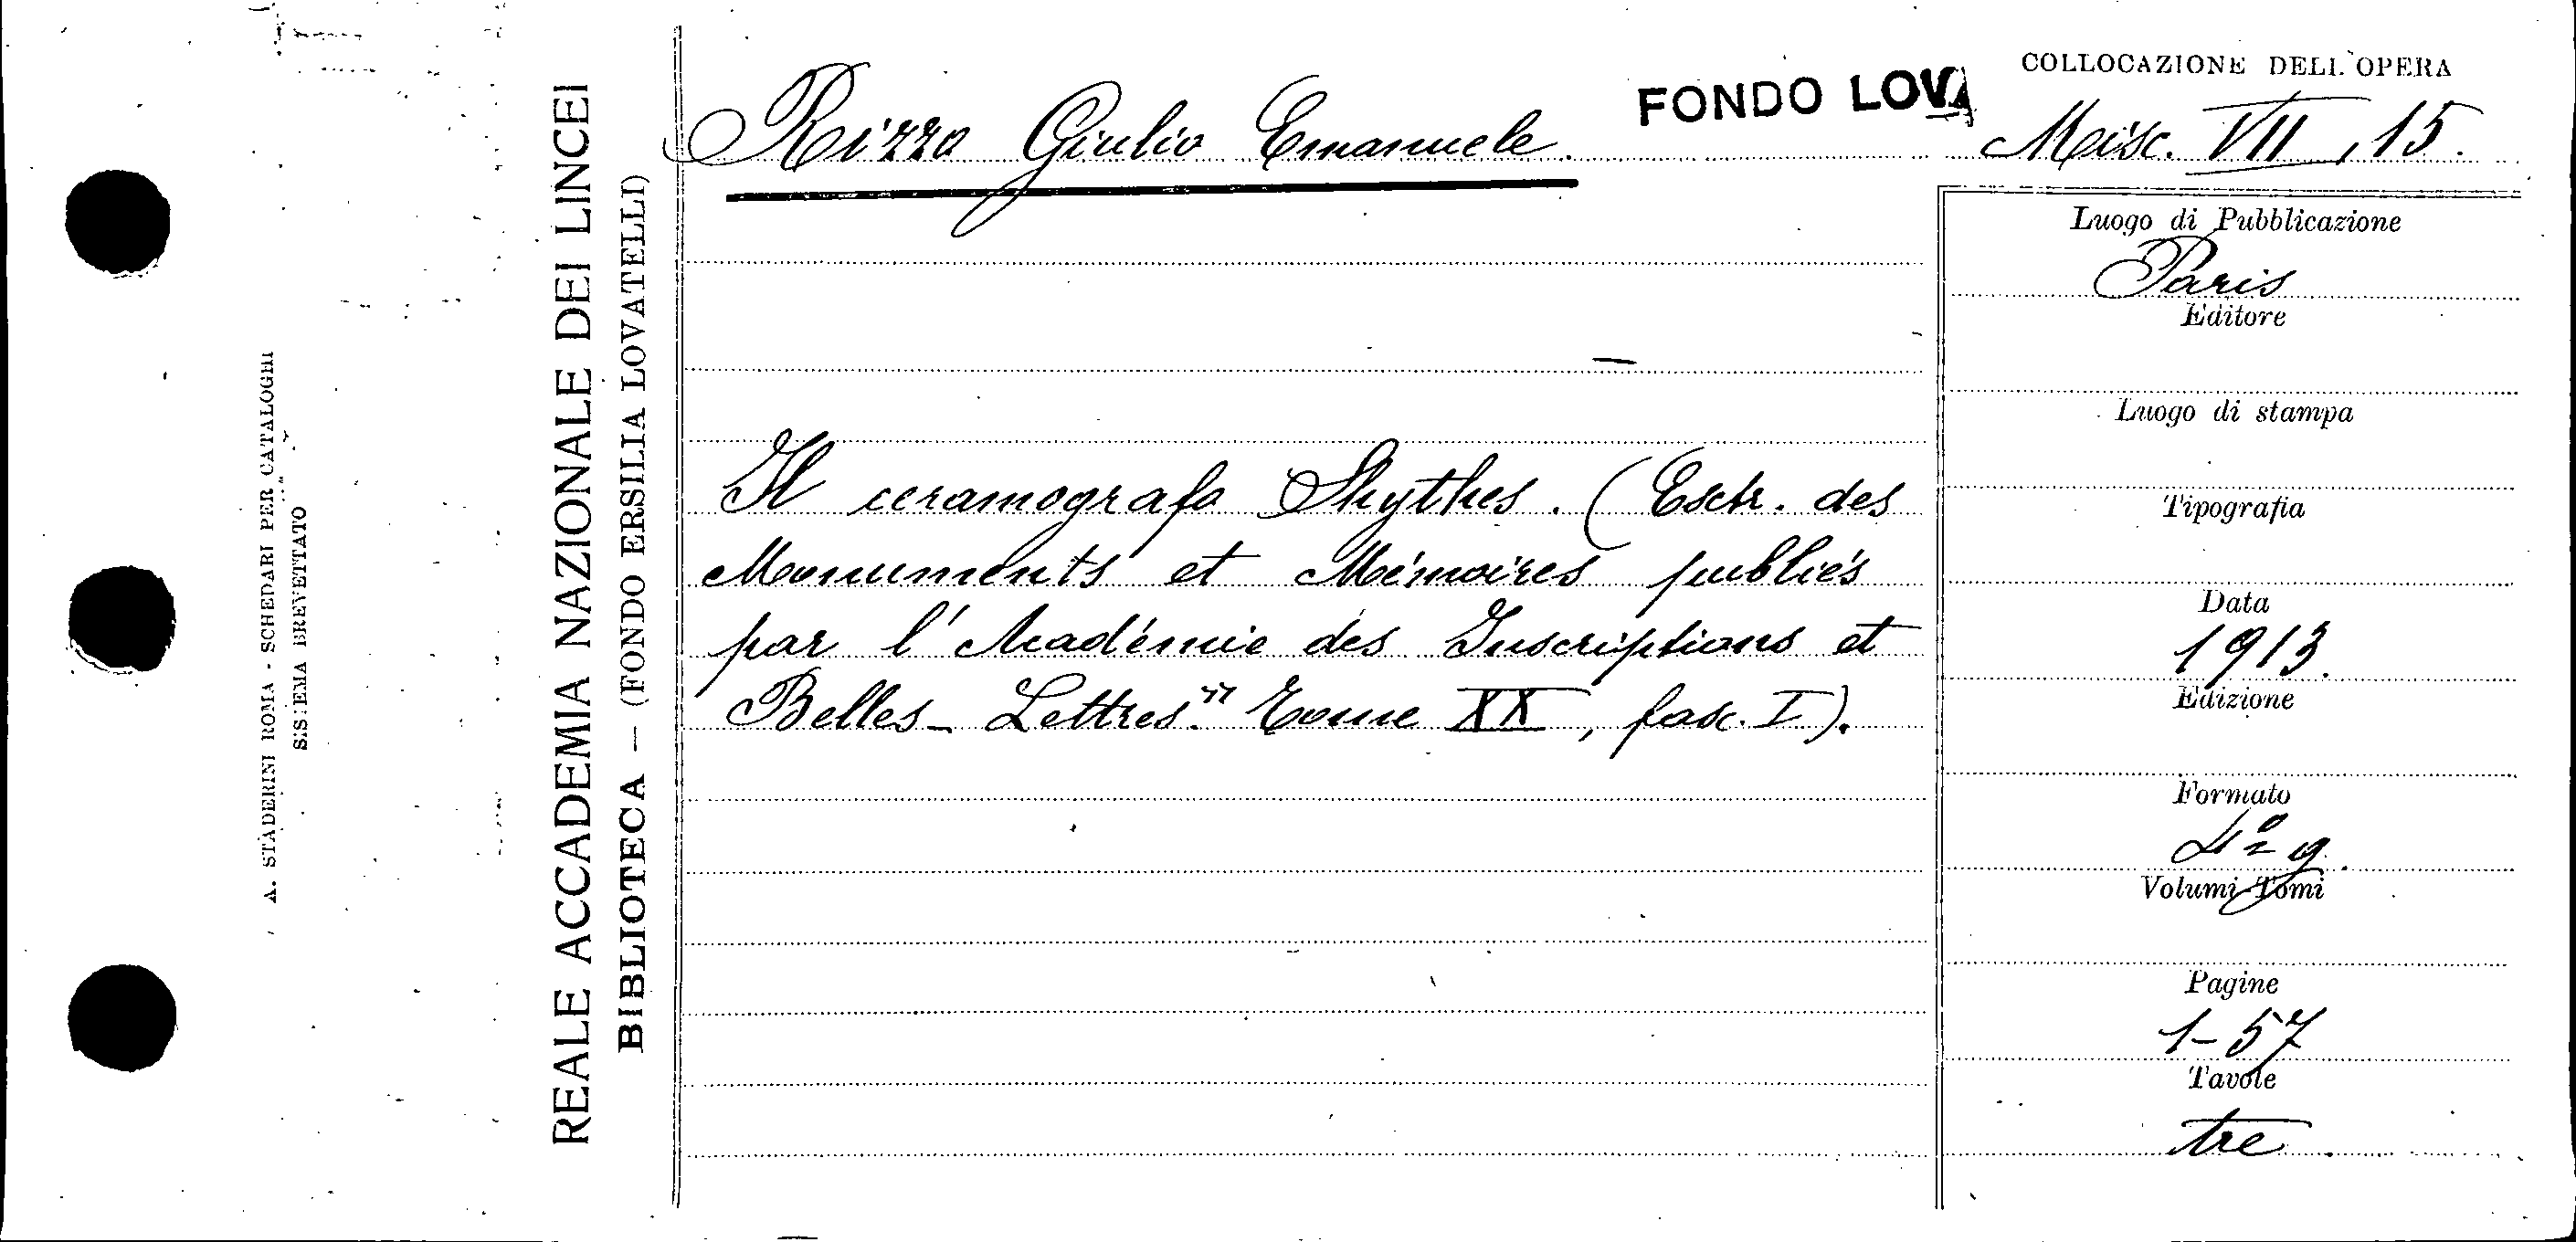 A. STADERINI ROMA - SCHEDARI PER CATALOGHI
SISTEMA BREVETTATO
REALE ACCADEMIA NAZIONALE DEI LINCEI
BIBLIOTECA — (FONDO ERSILIA LOVATELLI)
Rizzo Giulio Emanuele.
FONDO LOVA
COLLOCAZIONE DELL'OPERA
Misc. VII, 15.
Il ceramografo Skythes. (Estr. des
Monuments et Mémoires publiés
par l'Académie des Inscriptions et
Belles-Lettres" Tome XX, fasc. I).
Luogo di Pubblicazione
Paris
Editore
Luogo di stampa
Tipografia
Data
1913.
Edizione
Formato
4° g.
Volumi Tomi
Pagine
1-57
Tavole
tre